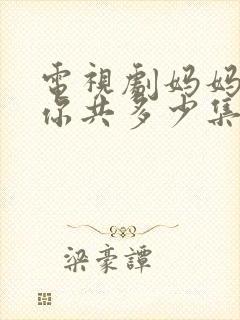 電視劇妈妈
你共多少集
梁豪譚